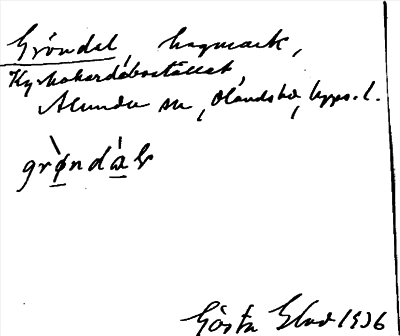 Gröndal, hagmark,
Kyrkoherdebostället
Alunda sn, Olands hd, Upps. l.
grò̱ndá̱lr
Gösta Elad 1936